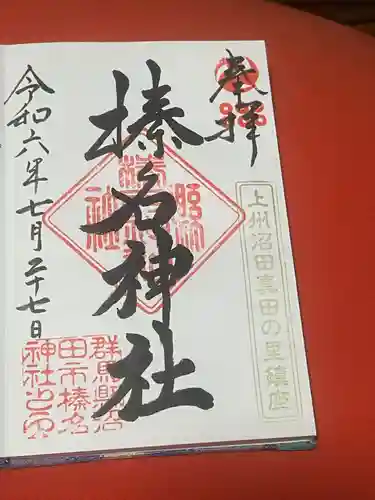 奉拝
上州沼田真田の里鎮座
榛名神社
令和六年七月二十七日
群馬縣沼
田市榛名
神社之印